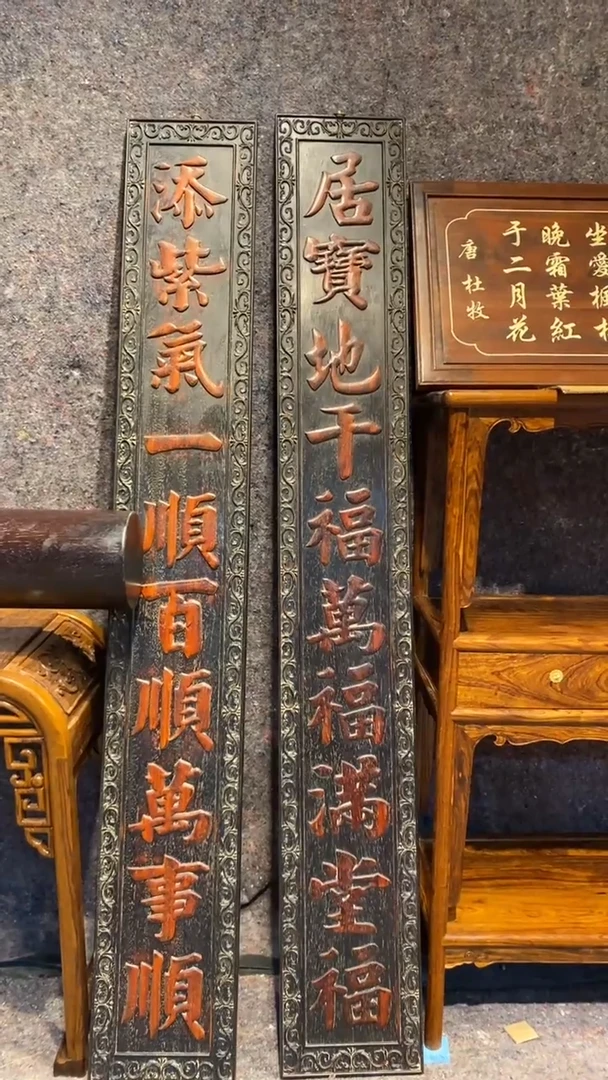 居寶地千福萬福滿堂福
添紫氣一順百順萬事順
坐愛楓
晚霜葉紅
于二月花
唐杜牧